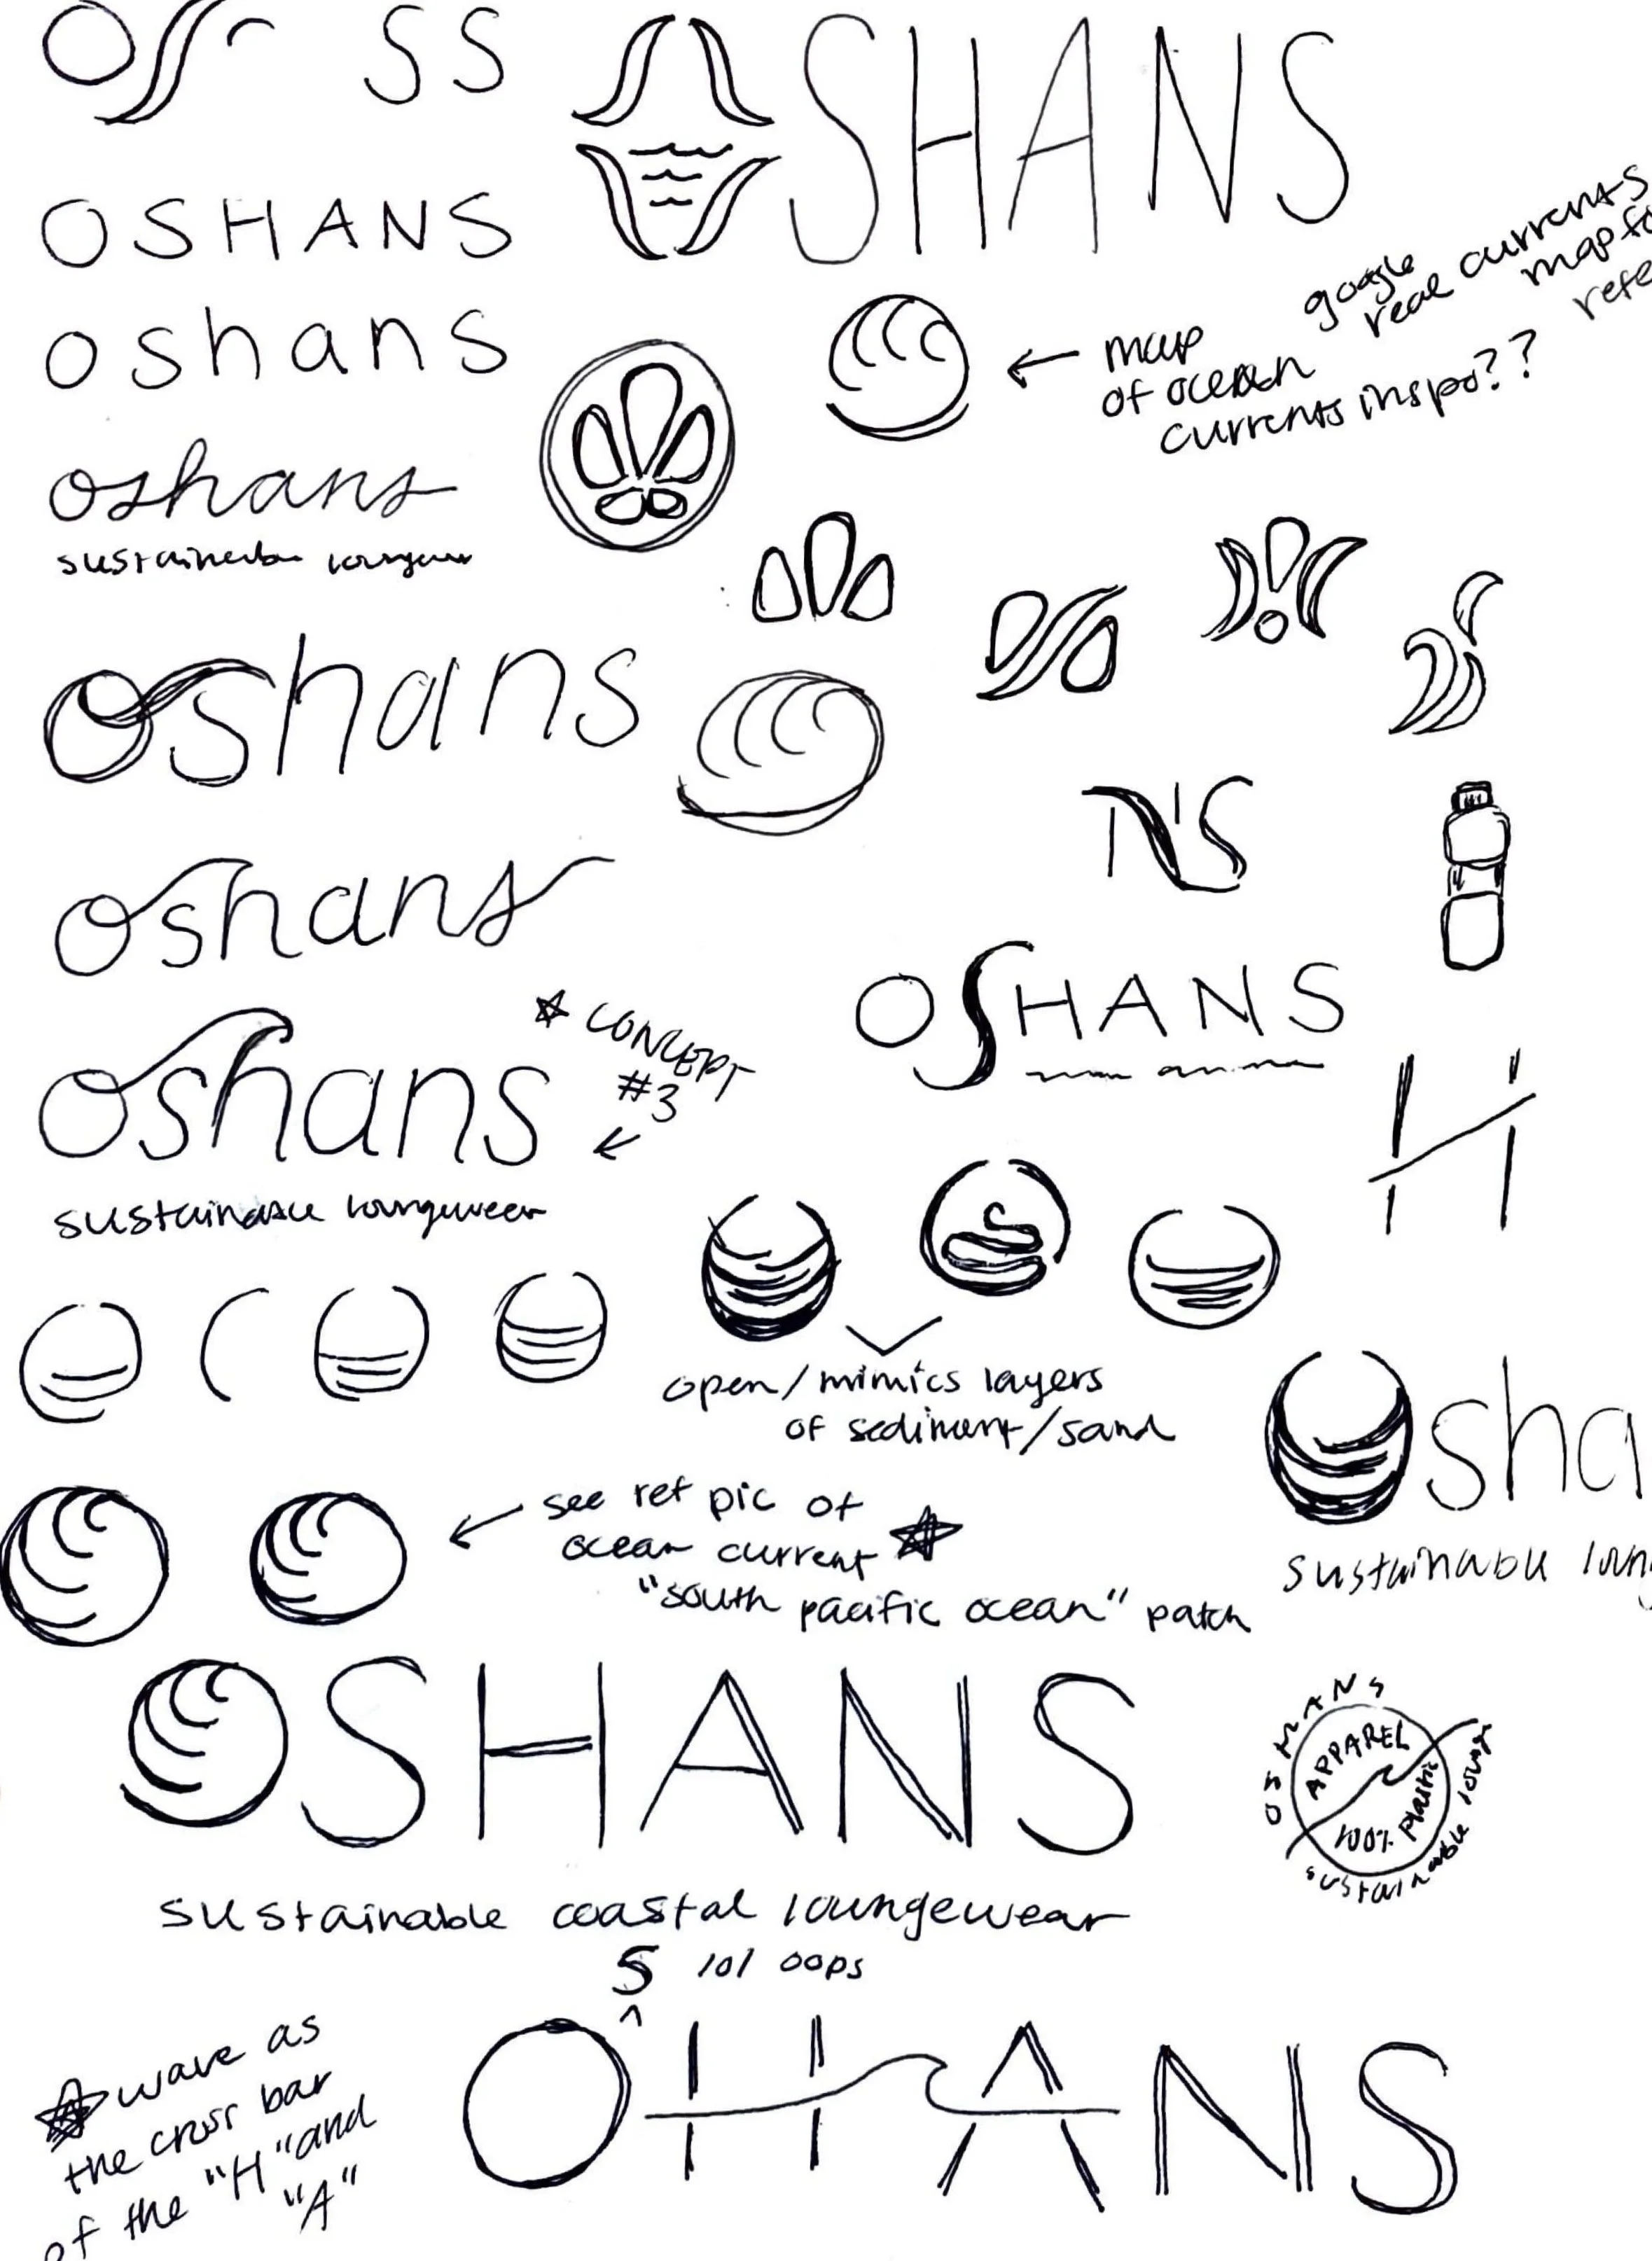 OS
S S
SHANS
OSHANS
oshans
google
real currents
map
of ocean
currents inspo??
oshans
oshans
oshans
N S
OSHANS
★ CONCEPT
#3
oshans
sustainable loungewear
H
open/mimics layers
of sediment/sand
Osha
sustainable
see ref pic of
ocean current ★
"south pacific ocean" patch
OSHANS
OSHANS
APPAREL
100% plastic
sustainable
sustainable coastal loungewear
S lol oops
^
OHANS
★ wave as
the cross bar
of the "H" and
"A"